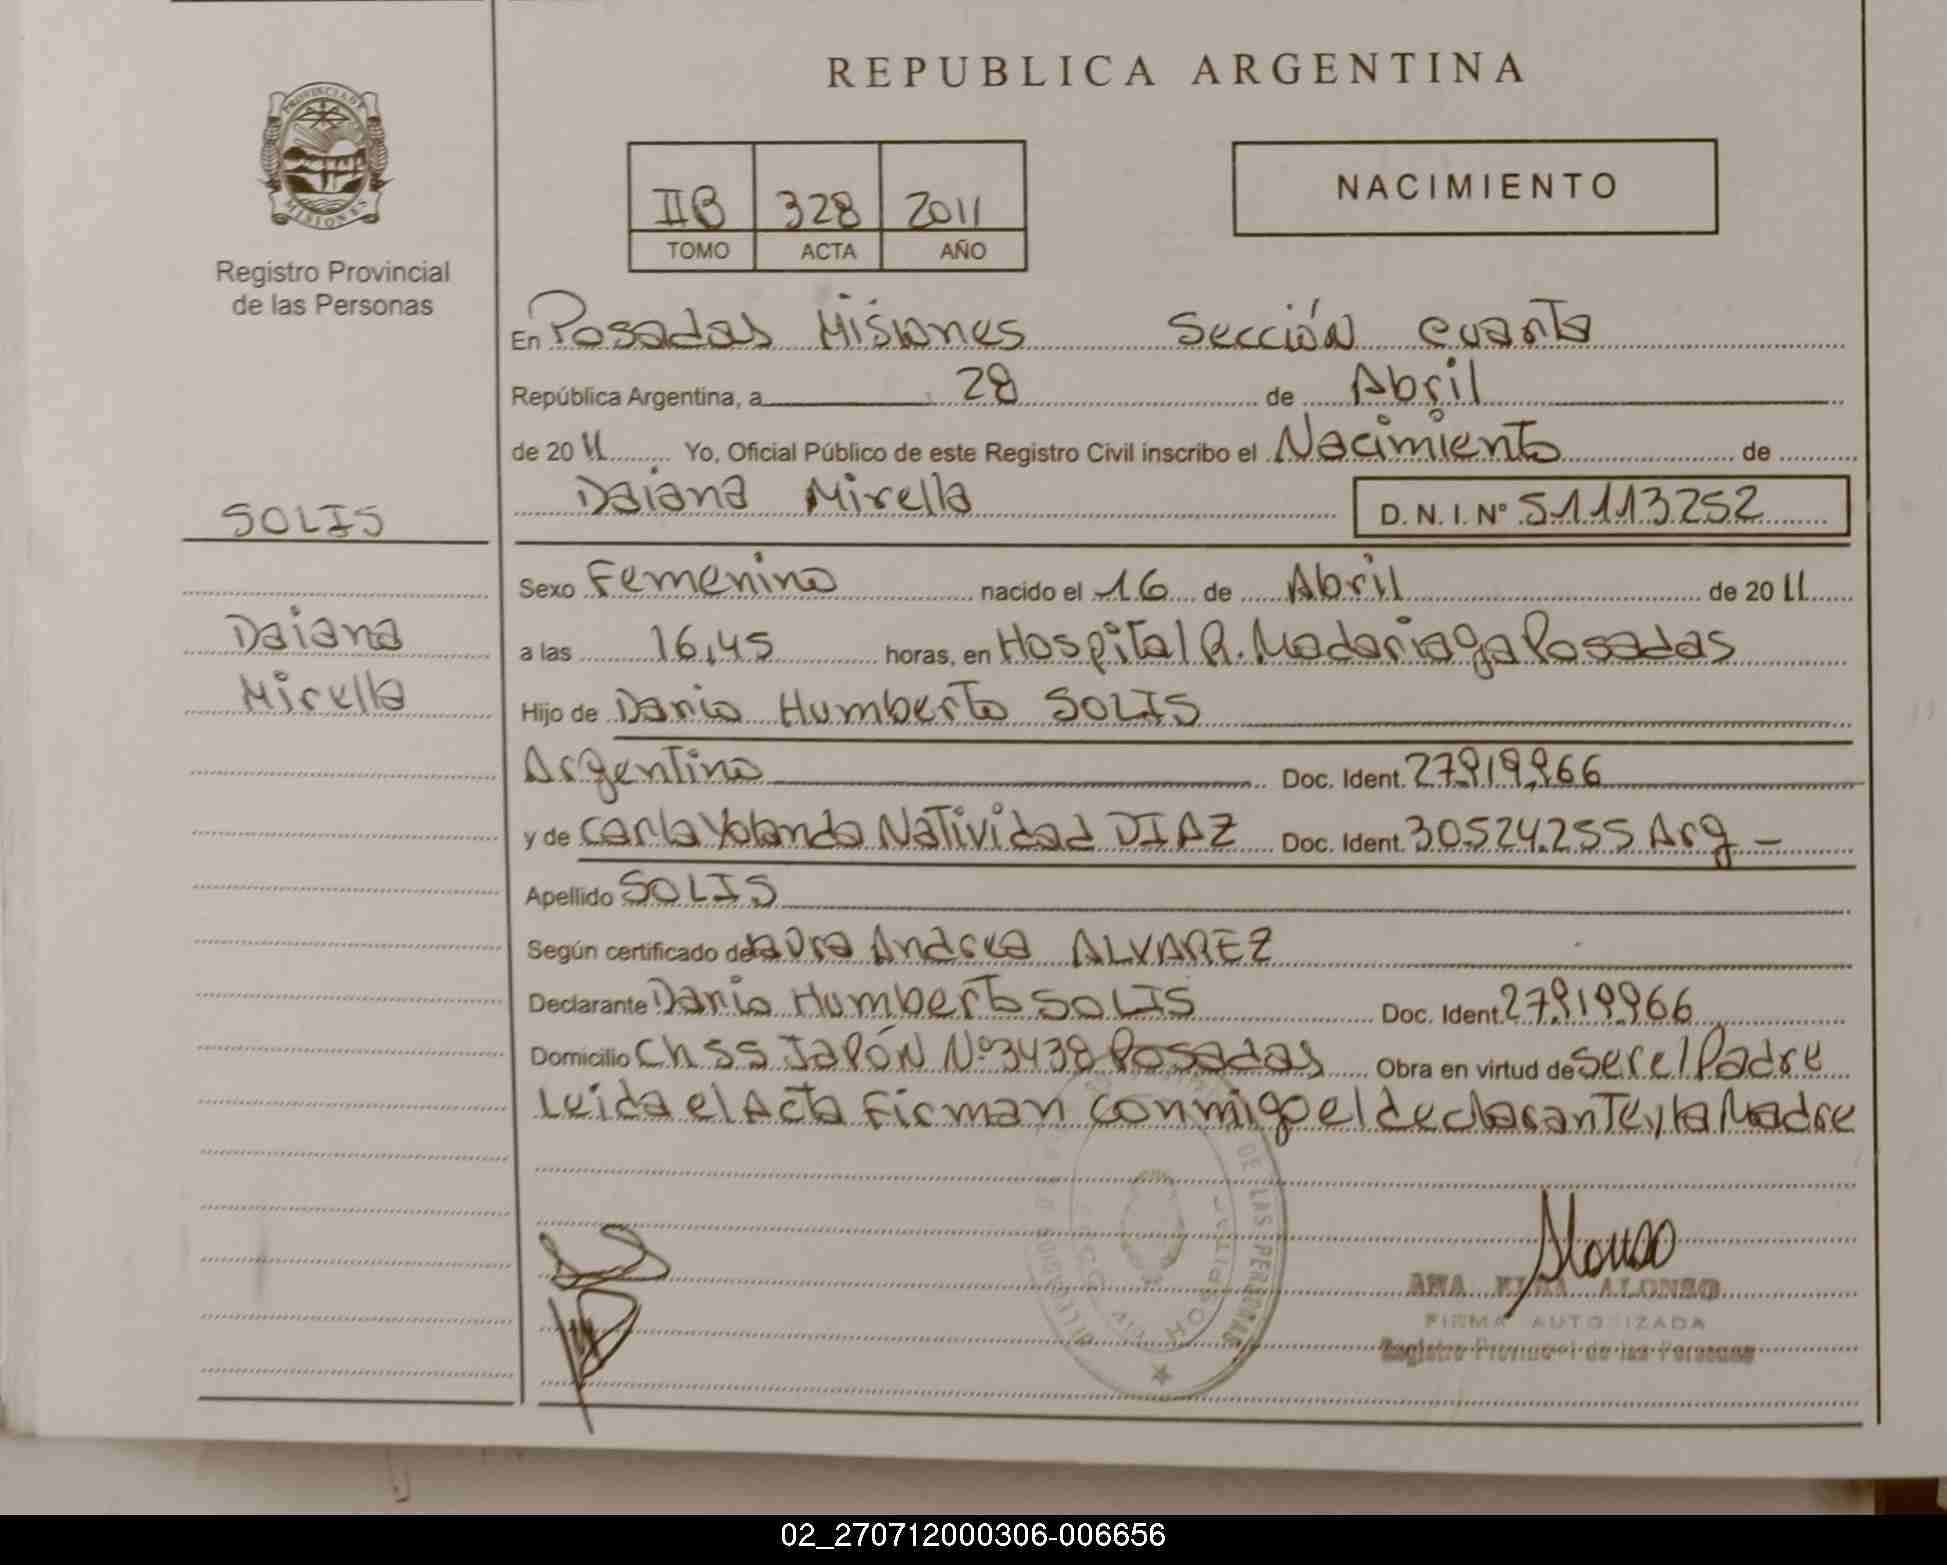 REPUBLICA ARGENTINA
PROVINCIA DE
MISIONES
Registro Provincial
de las Personas
IIB 328 2011
TOMO ACTA AÑO
NACIMIENTO
En Posadas Misiones Sección cuarta
República Argentina, a 28 de Abril
de 2011 Yo, Oficial Público de este Registro Civil inscribo el Nacimiento de
Daiana Mirella D. N. I. Nº 51113252
SOLIS
Daiana
Mirella
Sexo Femenino nacido el 16 de Abril de 2011
a las 16,45 horas, en Hospital R. Madariaga Posadas
Hijo de Dario Humberto SOLIS
Argentino Doc. Ident. 27.919.966
y de Carla Yolanda Natividad DIAZ Doc. Ident. 30.524.255 Arg -
Apellido SOLIS
Según certificado de Andrea ALVAREZ
Declarante Dario Humberto SOLIS Doc. Ident. 27.919.966
Domicilio Ch 55 JAPÓN Nº 3438 Posadas Obra en virtud de ser el Padre
Leida el Acta Firman conmigo el declarante y la Madre
DE LAS PERSONAS
HOSPITAL
Alonso
ANA ALONSO
FIRMA AUTORIZADA
Registro Provincial de las Personas
02_270712000306-006656